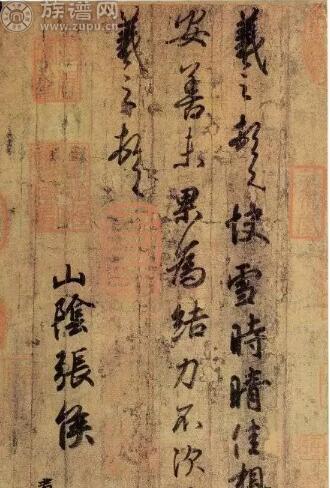 羲之頓首快雪時晴佳想
安善未果為結力不次
羲之頓首
山陰張侯
族谱网
www.zupu.cn